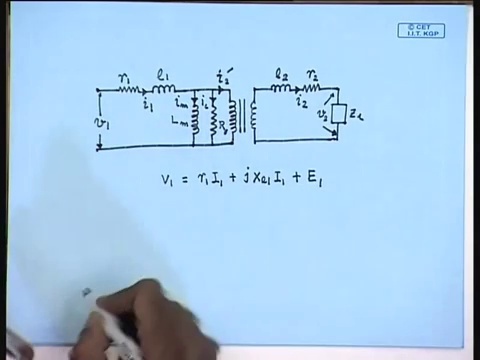 © CET
I.I.T. KGP
r1 l1 i2′ l2 r2
i1 im ic i2
v1 Lm v2 ZL
V1 = r1 I1 + j Xl1 I1 + E1